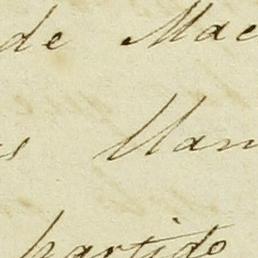 de Mac
s llam
partido